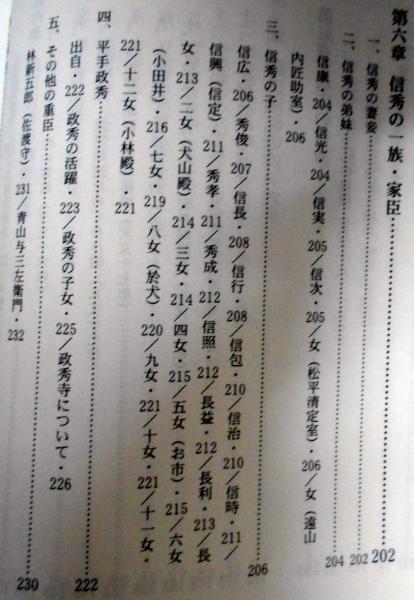 第六章　信秀の一族・家臣……………202
一、信秀の妻妾……………202
二、信秀の弟妹……………204
信康・204／信光・204／信実・205／信次・205／女（松平清定室）・206／女（遠山
内匠助室）・206
三、信秀の子……………206
信広・206／秀俊・207／信長・208／信行・208／信包・210／信治・210／信時・211／
信興（信定）・211／秀孝・211／秀成・212／信照・212／長益・212／長利・213／長
女・213／二女（犬山殿）・214／三女・214／四女・215／五女（お市）・215／六女
（小田井）・216／七女・219／八女（於犬）・220／九女・221／十女・221／十一女・
221／十二女（小林殿）・221
四、平手政秀……………222
出自・222／政秀の活躍・223／政秀の子女・225／政秀寺について・226
五、その他の重臣……………230
林新五郎（佐渡守）・231／青山与三左衛門・232